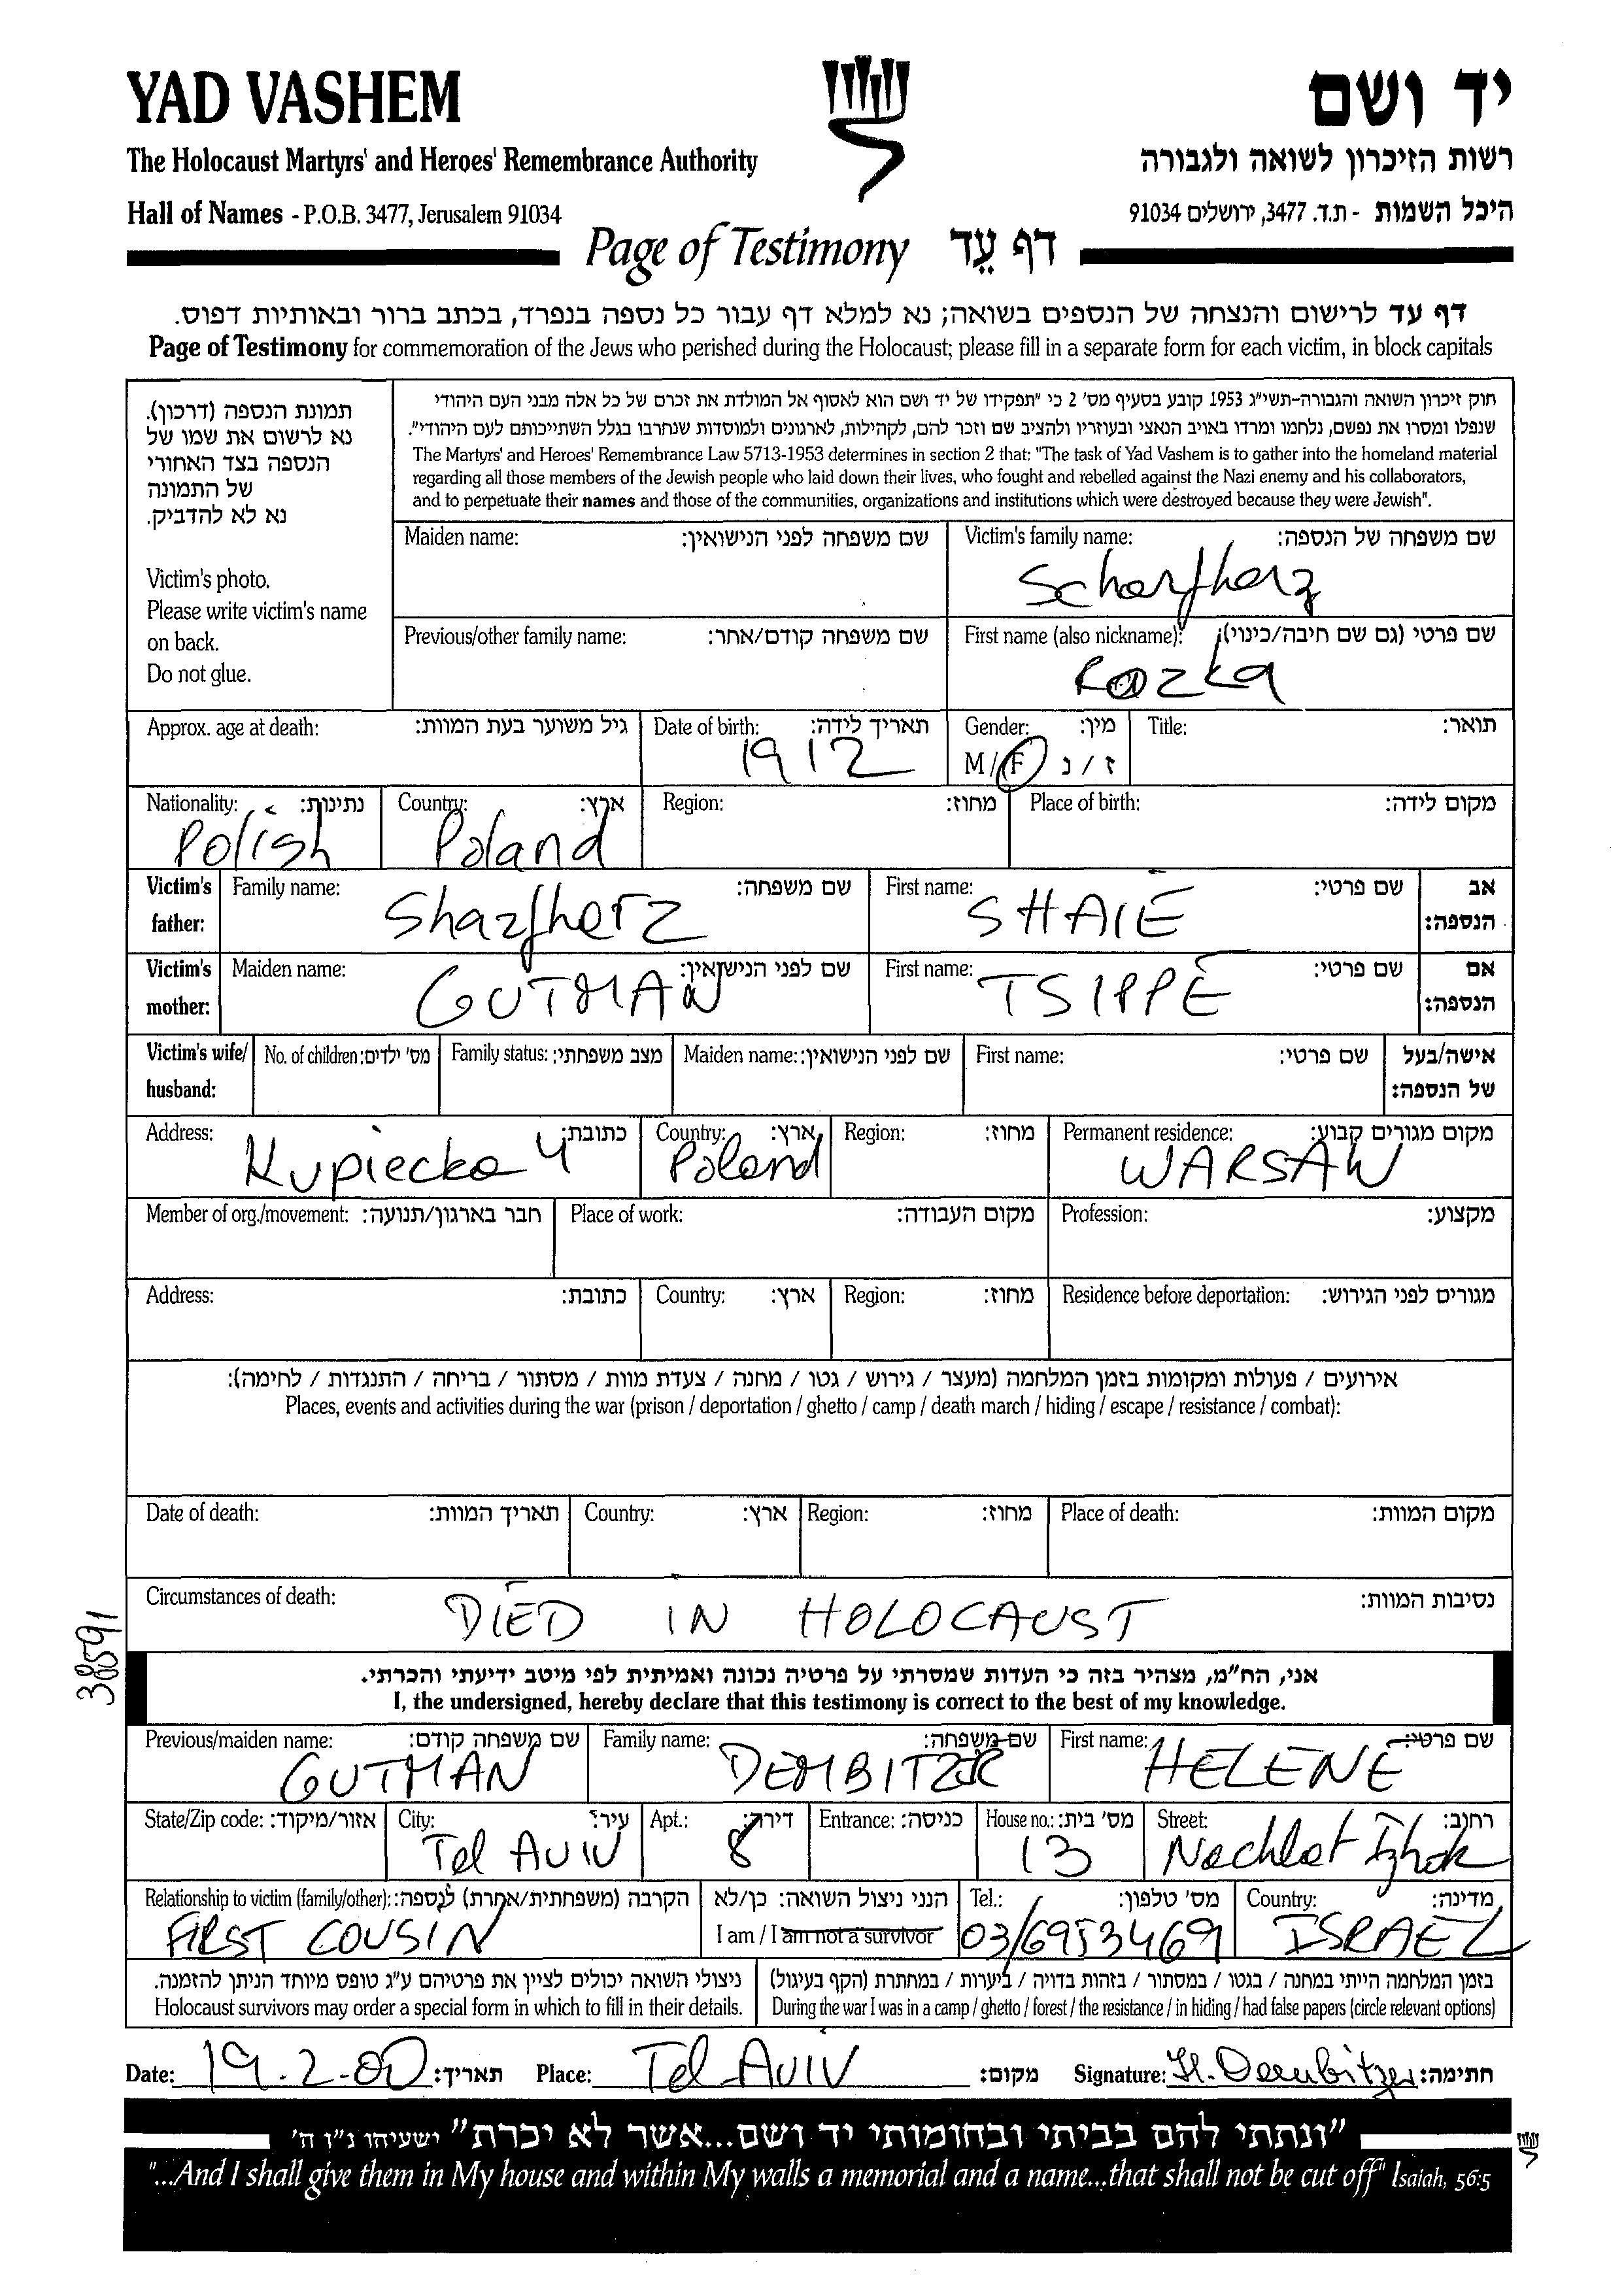 YAD VASHEM
יד ושם
The Holocaust Martyrs' and Heroes' Remembrance Authority
רשות הזיכרון לשואה ולגבורה
Hall of Names - P.O.B. 3477, Jerusalem 91034
היכל השמות - ת.ד. 3477, ירושלים 91034
Page of Testimony דף עֵד
דף עד לרישום והנצחה של הנספים בשואה; נא למלא דף עבור כל נספה בנפרד, בכתב ברור ובאותיות דפוס.
Page of Testimony for commemoration of the Jews who perished during the Holocaust; please fill in a separate form for each victim, in block capitals
תמונת הנספה (דרכון).
נא לרשום את שמו של
הנספה בצד האחורי
של התמונה
נא לא להדביק.
Victim's photo.
Please write victim's name
on back.
Do not glue.
חוק זיכרון השואה והגבורה-תשי"ג 1953 קובע בסעיף מס' 2 כי "תפקידו של יד ושם הוא לאסוף אל המולדת את זכרם של כל אלה מבני העם היהודי
שנפלו ומסרו את נפשם, נלחמו ומרדו באויב הנאצי ובעוזריו ולהציב שם וזכר להם, לקהילות, לארגונים ולמוסדות שנחרבו בגלל השתייכותם לעם היהודי".
The Martyrs' and Heroes' Remembrance Law 5713-1953 determines in section 2 that: "The task of Yad Vashem is to gather into the homeland material
regarding all those members of the Jewish people who laid down their lives, who fought and rebelled against the Nazi enemy and his collaborators,
and to perpetuate their names and those of the communities, organizations and institutions which were destroyed because they were Jewish".
Maiden name: שם משפחה לפני הנישואין: Victim's family name: שם משפחה של הנספה:
Scharfherz
Previous/other family name: שם משפחה קודם/אחר: First name (also nickname): שם פרטי (גם שם חיבה/כינוי):
Rozka
Approx. age at death: גיל משוער בעת המוות: Date of birth: תאריך לידה: Gender: מין: Title: תואר:
1912 M / F ז / נ
Nationality: נתינות: Country: ארץ: Region: מחוז: Place of birth: מקום לידה:
Polish Poland
Victim's father: Family name: שם משפחה: First name: שם פרטי: אב הנספה:
Sharfherz SHAIE
Victim's mother: Maiden name: שם לפני הנישואין: First name: שם פרטי: אם הנספה:
GUTMAN TSIPPE
Victim's wife/ husband: No. of children: מס' ילדים: Family status: מצב משפחתי: Maiden name: שם לפני הנישואין: First name: שם פרטי: אישה/בעל של הנספה:
Address: כתובת: Country: ארץ: Region: מחוז: Permanent residence: מקום מגורים קבוע:
Kupiecka 4 Poland WARSAW
Member of org./movement: חבר בארגון/תנועה: Place of work: מקום העבודה: Profession: מקצוע:
Address: כתובת: Country: ארץ: Region: מחוז: Residence before deportation: מגורים לפני הגירוש:
אירועים / פעולות ומקומות בזמן המלחמה (מעצר / גירוש / גטו / מחנה / צעדת מוות / מסתור / בריחה / התנגדות / לחימה):
Places, events and activities during the war (prison / deportation / ghetto / camp / death march / hiding / escape / resistance / combat):
Date of death: תאריך המוות: Country: ארץ: Region: מחוז: Place of death: מקום המוות:
Circumstances of death: נסיבות המוות:
DIED IN HOLOCAUST
38591
אני, הח"מ, מצהיר בזה כי העדות שמסרתי על פרטיה נכונה ואמיתית לפי מיטב ידיעתי והכרתי.
I, the undersigned, hereby declare that this testimony is correct to the best of my knowledge.
Previous/maiden name: שם משפחה קודם: Family name: שם משפחה: First name: שם פרטי:
GUTMAN DEMBITZER HELENE
State/Zip code: אזור/מיקוד: City: עיר: Apt.: דירה: Entrance: כניסה: House no.: מס' בית: Street: רחוב:
Tel AVIV 8 13 Nachlat Izhak
Relationship to victim (family/other): הקרבה (משפחתית/אחרת) לנספה: הנני ניצול השואה: כן/לא Tel.: מס' טלפון: Country: מדינה:
FIRST COUSIN I am / I am not a survivor 03/6953469 ISRAEL
ניצולי השואה יכולים לציין את פרטיהם ע"ג טופס מיוחד הניתן להזמנה. בזמן המלחמה הייתי במחנה / בגטו / במסתור / בזהות בדויה / ביערות / במחתרת (הקף בעיגול)
Holocaust survivors may order a special form in which to fill in their details. During the war I was in a camp / ghetto / forest / the resistance / in hiding / had false papers (circle relevant options)
Date: 19.2-00 תאריך: Place: Tel-AVIV מקום: Signature: H. Dembitzer חתימה:
"ונתתי להם בביתי ובחומותי יד ושם...אשר לא יכרת" ישעיהו נ"ו ה'
"...And I shall give them in My house and within My walls a memorial and a name...that shall not be cut off" Isaiah, 56:5